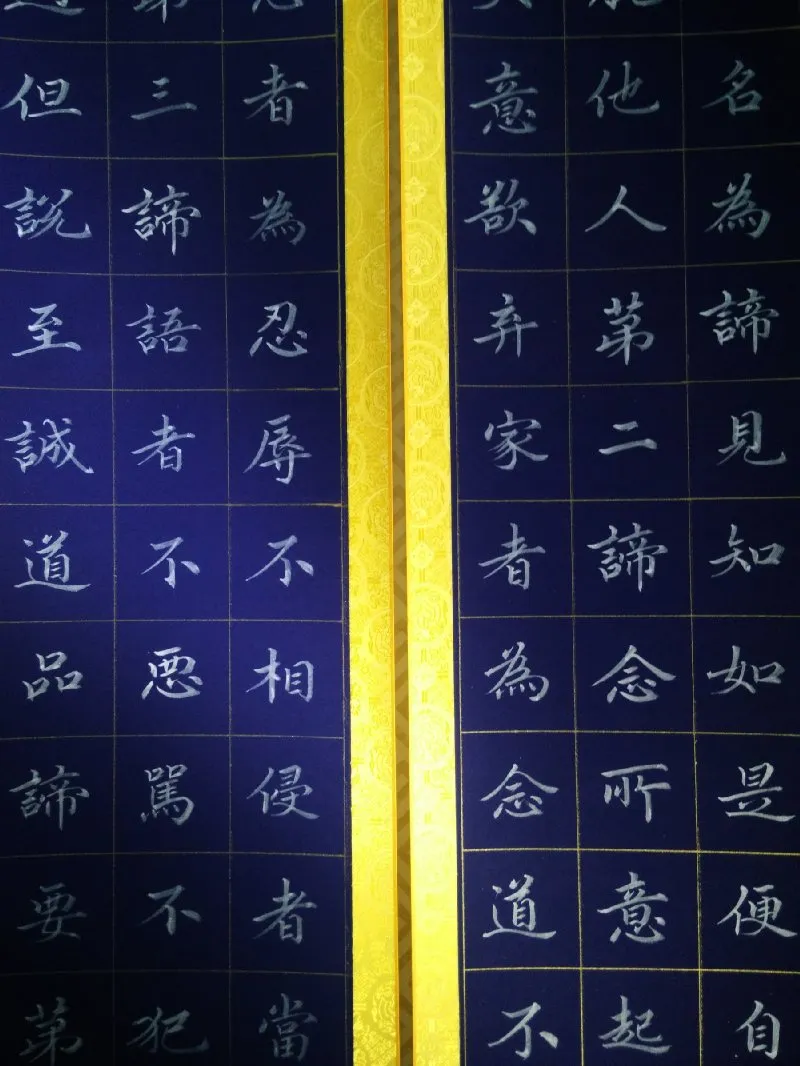 名為諦見知如是便自
他人苐二諦念所意起
意欲弃家者為念道不
者為忍辱不相侵者當
三諦語者不悪罵不犯
但說至誠道品諦要苐